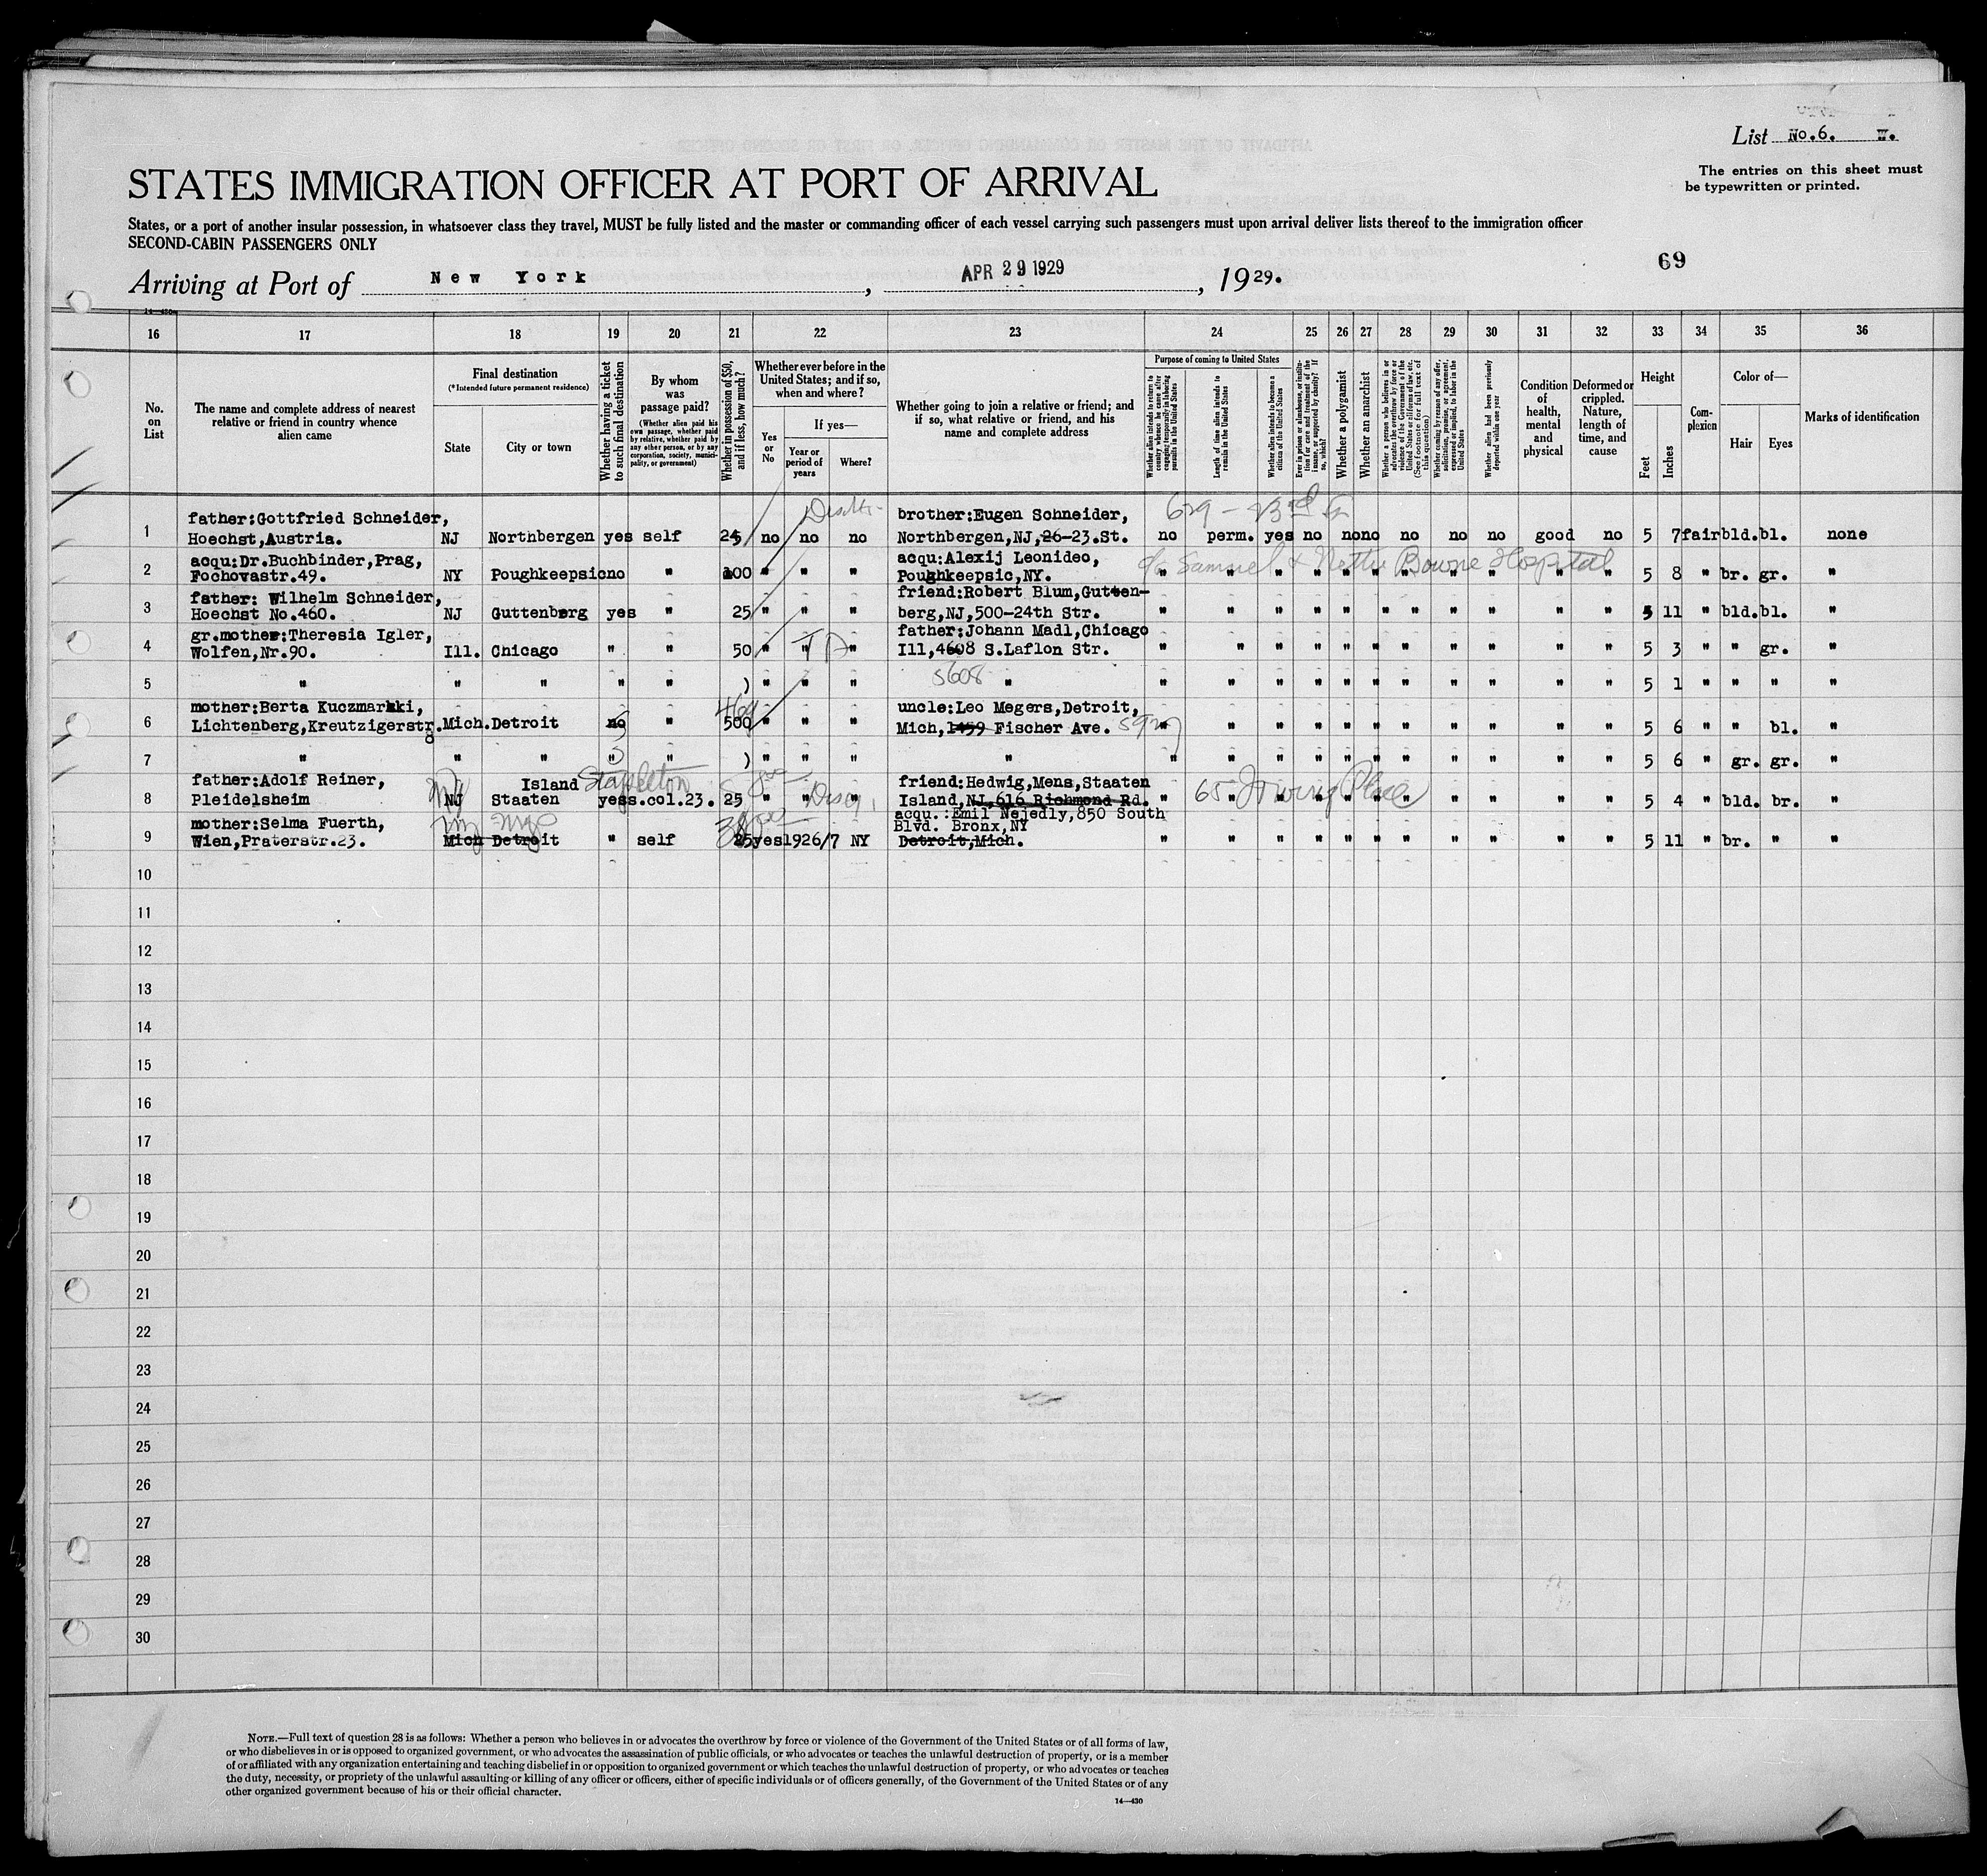 List No.6. W.
The entries on this sheet must
be typewritten or printed.
STATES IMMIGRATION OFFICER AT PORT OF ARRIVAL
States, or a port of another insular possession, in whatsoever class they travel, MUST be fully listed and the master or commanding officer of each vessel carrying such passengers must upon arrival deliver lists thereof to the immigration officer
SECOND-CABIN PASSENGERS ONLY
69
Arriving at Port of New York, APR 29 1929, 1929.
14-430
16 17 18 19 20 21 22 23 24 25 26 27 28 29 30 31 32 33 34 35 36
No. on List
The name and complete address of nearest relative or friend in country whence alien came
Final destination
(*Intended future permanent residence)
State
City or town
Whether having a ticket to such final destination
By whom was passage paid?
(Whether alien paid his own passage, whether paid by relative, whether paid by any other person, or by any corporation, society, municipality, or government)
Whether in possession of $50, and if less, how much?
Whether ever before in the United States; and if so, when and where?
Yes or No
If yes—
Year or period of years
Where?
Whether going to join a relative or friend; and if so, what relative or friend, and his name and complete address
Purpose of coming to United States
Whether alien intends to return to country whence he came after engaging temporarily in laboring pursuits in the United States
Length of time alien intends to remain in the United States
Whether alien intends to become a citizen of the United States
Ever in prison or almshouse, or institution for care and treatment of the insane, or supported by charity? If so, which?
Whether a polygamist
Whether an anarchist
Whether a person who believes in or advocates the overthrow by force or violence of the Government of the United States or all forms of law, etc. (See footnote for full text of this question)
Whether coming by reason of any offer, solicitation, promise, or agreement, expressed or implied, to labor in the United States
Whether alien had been previously deported within one year
Condition of health, mental and physical
Deformed or crippled. Nature, length of time, and cause
Height
Feet
Inches
Complexion
Color of—
Hair
Eyes
Marks of identification
Disch-
629 - 23rd St
father:Gottfried Schneider, brother:Eugen Schneider,
1 Hoechst,Austria. NJ Northbergen yes self 25 no no no Northbergen,NJ,26-23.St. no perm. yes no no no no no no good no 5 7 fair bld. bl. none
acqu:Dr.Buchbinder,Prag, acqu:Alexij Leonideo, c/o Samuel & Nettie Bowne Hospital
2 Fochovastr.49. NY Poughkeepsic no " 100 " " " Poughkeepsic,NY. " " " " " " " " " " " 5 8 " br. gr. "
father: Wilhelm Schneider, friend:Robert Blum,Gutten-
3 Hoechst No.460. NJ Guttenberg yes " 25 " " " berg,NJ,500-24th Str. " " " " " " " " " " " " 5 11 " bld. bl. "
gr.mother:Theresia Igler, father:Johann Madl,Chicago
4 Wolfen,Nr.90. Ill. Chicago " " 50 " " " Ill,4608 S.Laflon Str. " " " " " " " " " " " 5 3 " " gr. "
5608
5 " " " " " ) " " " " " " " " " " " " " " " 5 1 " " " "
mother:Berta Kuczmarkki, 460 uncle:Leo Megers,Detroit,
6 Lichtenberg,Kreutzigerstr. Mich. Detroit no " 500 " " " Mich,1459 Fischer Ave. " " " " " " " " " " " 5 6 " " bl. "
8
7 " " " " " ) " " " " " " " " " " " " " " " 5 6 " gr. gr. "
father:Adolf Reiner, NY Island Stapleton friend:Hedwig,Mens,Staaten 65 Irving Place
8 Pleidelsheim NJ Staaten yes s.col.23. 25 " " " Island,NJ,616 Richmond Rd. " " " " " " " " " " " 5 4 " bld. br. "
mother:Selma Fuerth, NY NYC acqu.:Emil Nejedly,850 South
Blvd. Bronx,NY
9 Wien,Praterstr.23. Mich Detroit " self 25 yes 1926/7 NY Detroit,Mich. " " " " " " " " " " " 5 11 " br. " "
10
11
12
13
14
15
16
17
18
19
20
21
22
23
24
25
26
27
28
29
30
NOTE.—Full text of question 28 is as follows: Whether a person who believes in or advocates the overthrow by force or violence of the Government of the United States or of all forms of law,
or who disbelieves in or is opposed to organized government, or who advocates the assassination of public officials, or who advocates or teaches the unlawful destruction of property, or is a member
of or affiliated with any organization entertaining and teaching disbelief in or opposition to organized government or which teaches the unlawful destruction of property, or who advocates or teaches
the duty, necessity, or propriety of the unlawful assaulting or killing of any officer or officers, either of specific individuals or of officers generally, of the Government of the United States or of any
other organized government because of his or their official character.
14—430